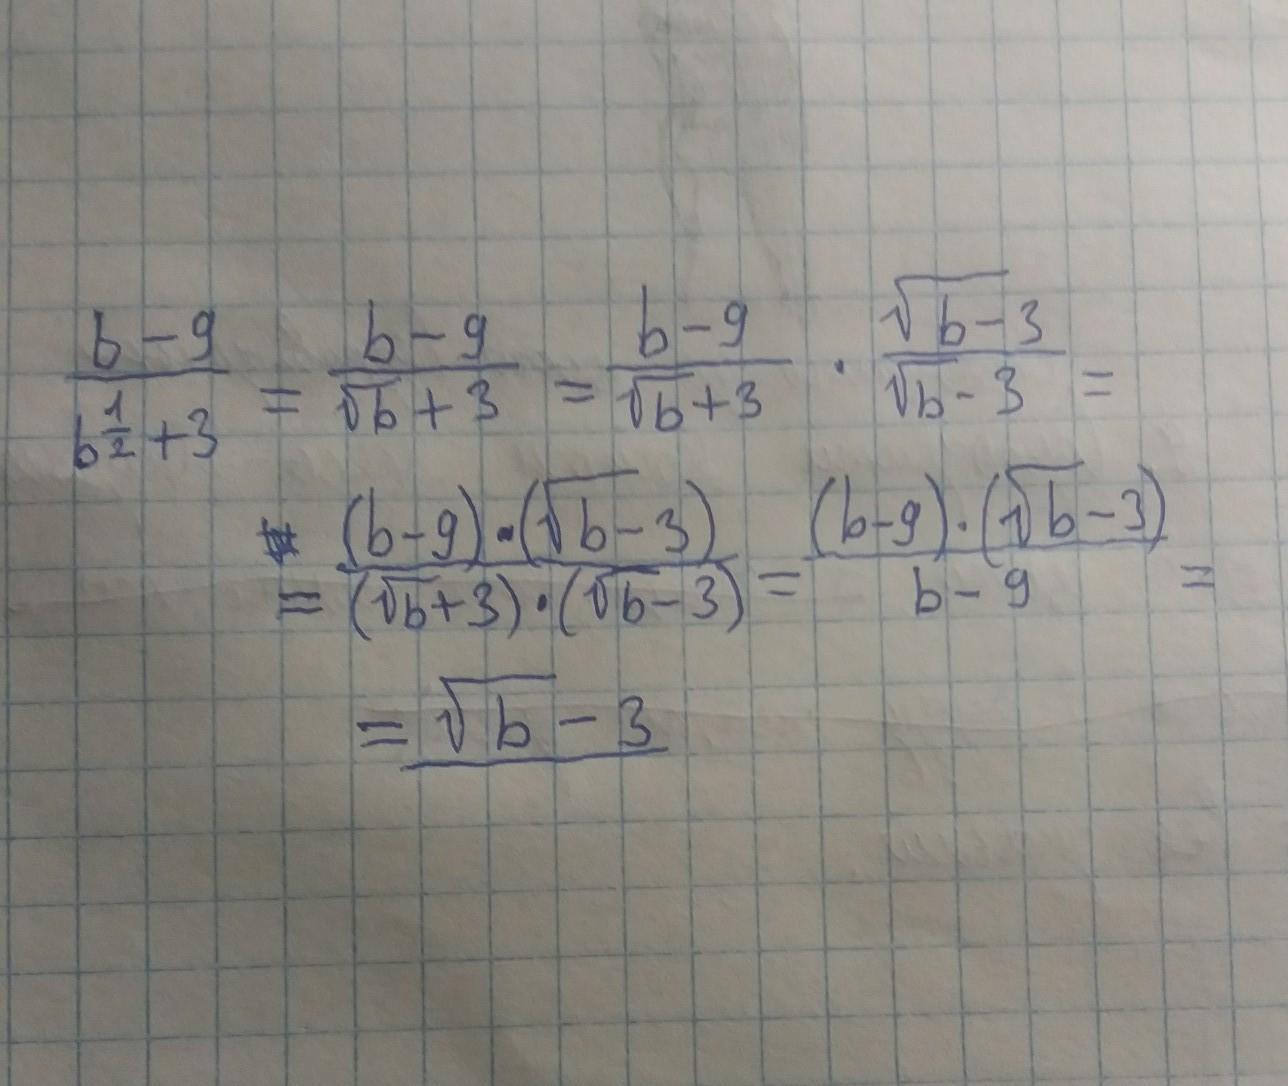 \frac{b-9}{b^{\frac{1}{2}}+3} = \frac{b-9}{\sqrt{b}+3} = \frac{b-9}{\sqrt{b}+3} \cdot \frac{\sqrt{b}-3}{\sqrt{b}-3} =
= \frac{(b-9) \cdot (\sqrt{b}-3)}{(\sqrt{b}+3) \cdot (\sqrt{b}-3)} = \frac{(b-9) \cdot (\sqrt{b}-3)}{b-9} =
= \sqrt{b}-3